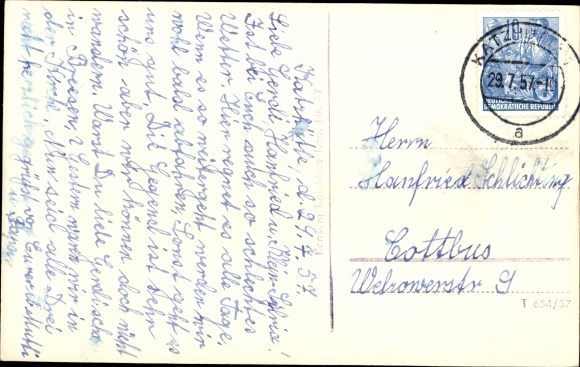 Katzhütte, d. 29.7.57.
Liebe Gerdi, Hanfried u. Klein-Silvia!
Ist bei Euch auch so schlechtes
Wetter. Hier regnet es alle Tage.
Wenn es so weitergeht werden wir
wohl bald abfahren. Sonst geht es
uns gut. Die Gegend ist sehr
schön aber man kann doch nicht
wandern. Warst Du liebe Gerdi schon
in
Gestern waren wir in
der Kirche. Nun seid alle Drei
recht herzlich gegrüßt von Eurer Mutti
u. Papa
KATZHÜTTE
29.7.57
a
10
DEUTSCHE
DEMOKRATISCHE REPUBLIK
Herrn
Hanfried Schlichting
Cottbus
Welzowerstr. 9
T 654/57